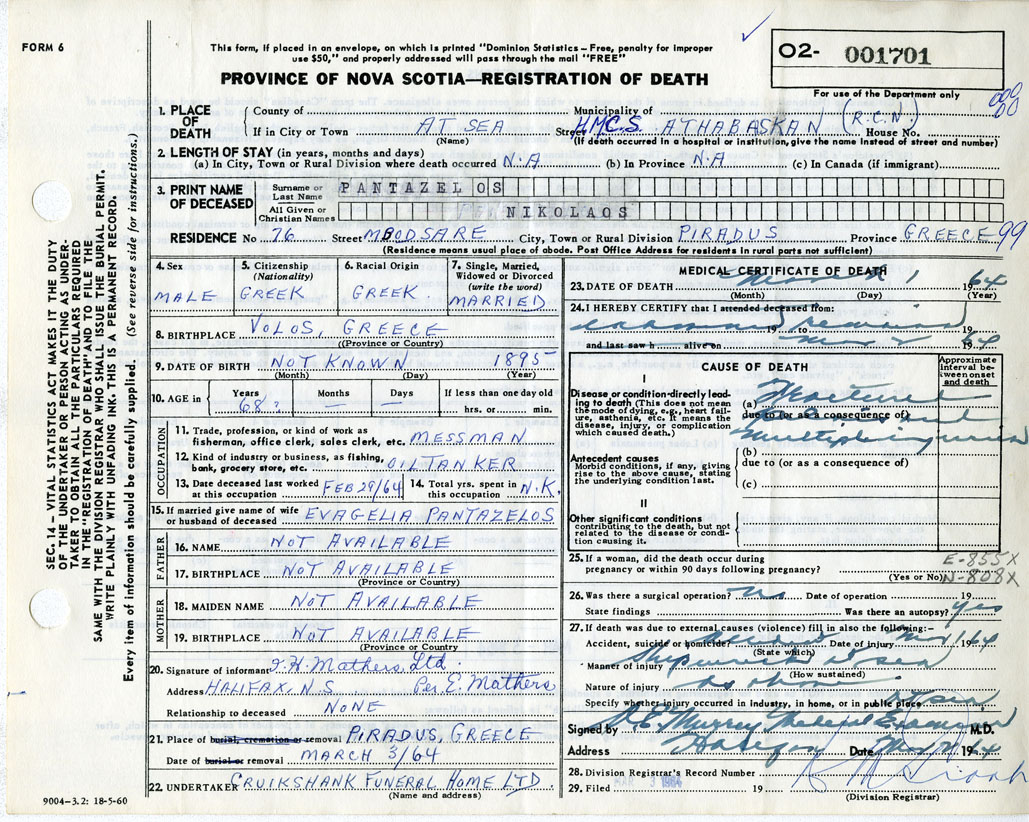 FORM 6
This form, if placed in an envelope, on which is printed "Dominion Statistics – Free, penalty for improper
use $50," and properly addressed will pass through the mail "FREE"
PROVINCE OF NOVA SCOTIA—REGISTRATION OF DEATH
O2- 001701
For use of the Department only
1. PLACE OF DEATH
County of Municipality of
If in City or Town AT SEA Street H.M.C.S. ATHABASKAN (R.C.N.) House No.
(Name) (If death occurred in a hospital or institution, give the name instead of street and number)
2. LENGTH OF STAY (in years, months and days)
(a) In City, Town or Rural Division where death occurred N.A (b) In Province N.A (c) In Canada (if immigrant)
3. PRINT NAME OF DECEASED
Surname or Last Name PANTAZELOS
All Given or Christian Names NIKOLAOS
RESIDENCE No 76 Street MBODSARE City, Town or Rural Division PIRADUS Province GREECE 99
(Residence means usual place of abode. Post Office Address for residents in rural parts not sufficient)
4. Sex MALE
5. Citizenship (Nationality) GREEK
6. Racial Origin GREEK
7. Single, Married, Widowed or Divorced (write the word) MARRIED
8. BIRTHPLACE VOLOS, GREECE
(Province or Country)
9. DATE OF BIRTH NOT KNOWN 1895
(Month) (Day) (Year)
10. AGE in Years Months Days If less than one day old
68? – – hrs. or min.
OCCUPATION
11. Trade, profession, or kind of work as
fisherman, office clerk, sales clerk, etc. MESSMAN
12. Kind of industry or business, as fishing,
bank, grocery store, etc. OIL TANKER
13. Date deceased last worked at this occupation FEB 29/64
14. Total yrs. spent in this occupation N.K.
15. If married give name of wife
or husband of deceased EVAGELIA PANTAZELOS
FATHER
16. NAME NOT AVAILABLE
17. BIRTHPLACE NOT AVAILABLE
(Province or Country)
MOTHER
18. MAIDEN NAME NOT AVAILABLE
19. BIRTHPLACE NOT AVAILABLE
(Province or Country
20. Signature of informant Mathers Ltd.
Address HALIFAX, N.S. Per E. Mathers
Relationship to deceased NONE
21. Place of burial, cremation or removal PIRADUS, GREECE
Date of burial or removal MARCH 3/64
22. UNDERTAKER CRUIKSHANK FUNERAL HOME LTD
(Name and address)
9004–3.2: 18-5-60
MEDICAL CERTIFICATE OF DEATH
23. DATE OF DEATH March 1 1964
(Month) (Day) (Year)
24. I HEREBY CERTIFY that I attended deceased from:
19 19
and last saw h alive on 1964
CAUSE OF DEATH
Approximate interval between onset and death
I
Disease or condition directly leading to death (This does not mean
the mode of dying, e.g., heart failure, asthenia, etc. It means the
disease, injury, or complication which caused death.)
(a) Fractured
due to (or as a consequence of)
multiple injuries
Antecedent causes
Morbid conditions, if any, giving
rise to the above cause, stating
the underlying condition last.
(b)
due to (or as a consequence of)
(c)
II
Other significant conditions
contributing to the death, but not
related to the disease or condition causing it.
25. If a woman, did the death occur during
pregnancy or within 90 days following pregnancy?
(Yes or No)
E-855X
N-808X
26. Was there a surgical operation? no Date of operation 19
State findings Was there an autopsy? yes
27. If death was due to external causes (violence) fill in also the following:–
Accident, suicide or homicide? Accident Date of injury Mar 1 1964
(State which)
Manner of injury Shipwreck at sea
(How sustained)
Nature of injury as above
Specify whether injury occurred in industry, in home, or in public place at sea
Signed by Murray Medical Examiner M.D.
Address Halifax Date Mar 1964
28. Division Registrar's Record Number
29. Filed MAR 3 1964 19
(Division Registrar)
SEC. 14 – VITAL STATISTICS ACT MAKES IT THE DUTY
OF THE UNDERTAKER OR PERSON ACTING AS UNDERTAKER TO OBTAIN ALL THE PARTICULARS REQUIRED
IN THE "REGISTRATION OF DEATH" AND TO FILE THE
SAME WITH THE DIVISION REGISTRAR WHO SHALL ISSUE THE BURIAL PERMIT.
WRITE PLAINLY WITH UNFADING INK. THIS IS A PERMANENT RECORD.
Every item of information should be carefully supplied. (See reverse side for instructions.)